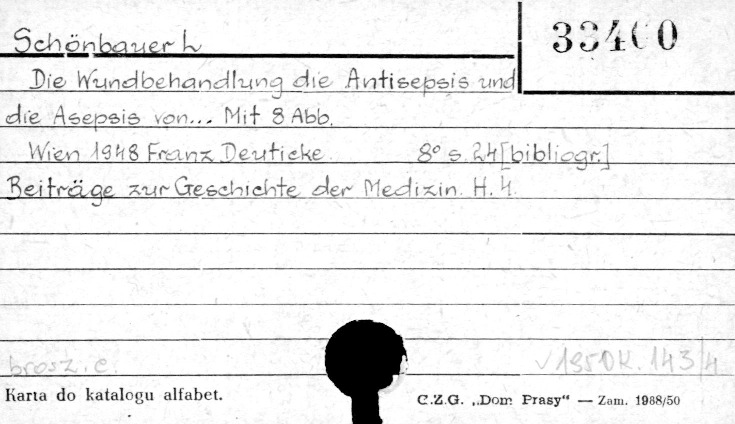 Schönbauer L
33400
Die Wundbehandlung die Antisepsis und
die Asepsis von... Mit 8 Abb.
Wien 1948 Franz Deuticke. 8° s. 24 [bibliogr.]
Beiträge zur Geschichte der Medizin. H. 4.
brosz. e.
143/4
Karta do katalogu alfabet.
C.Z.G. „Dom Prasy“ — Zam. 1988/50